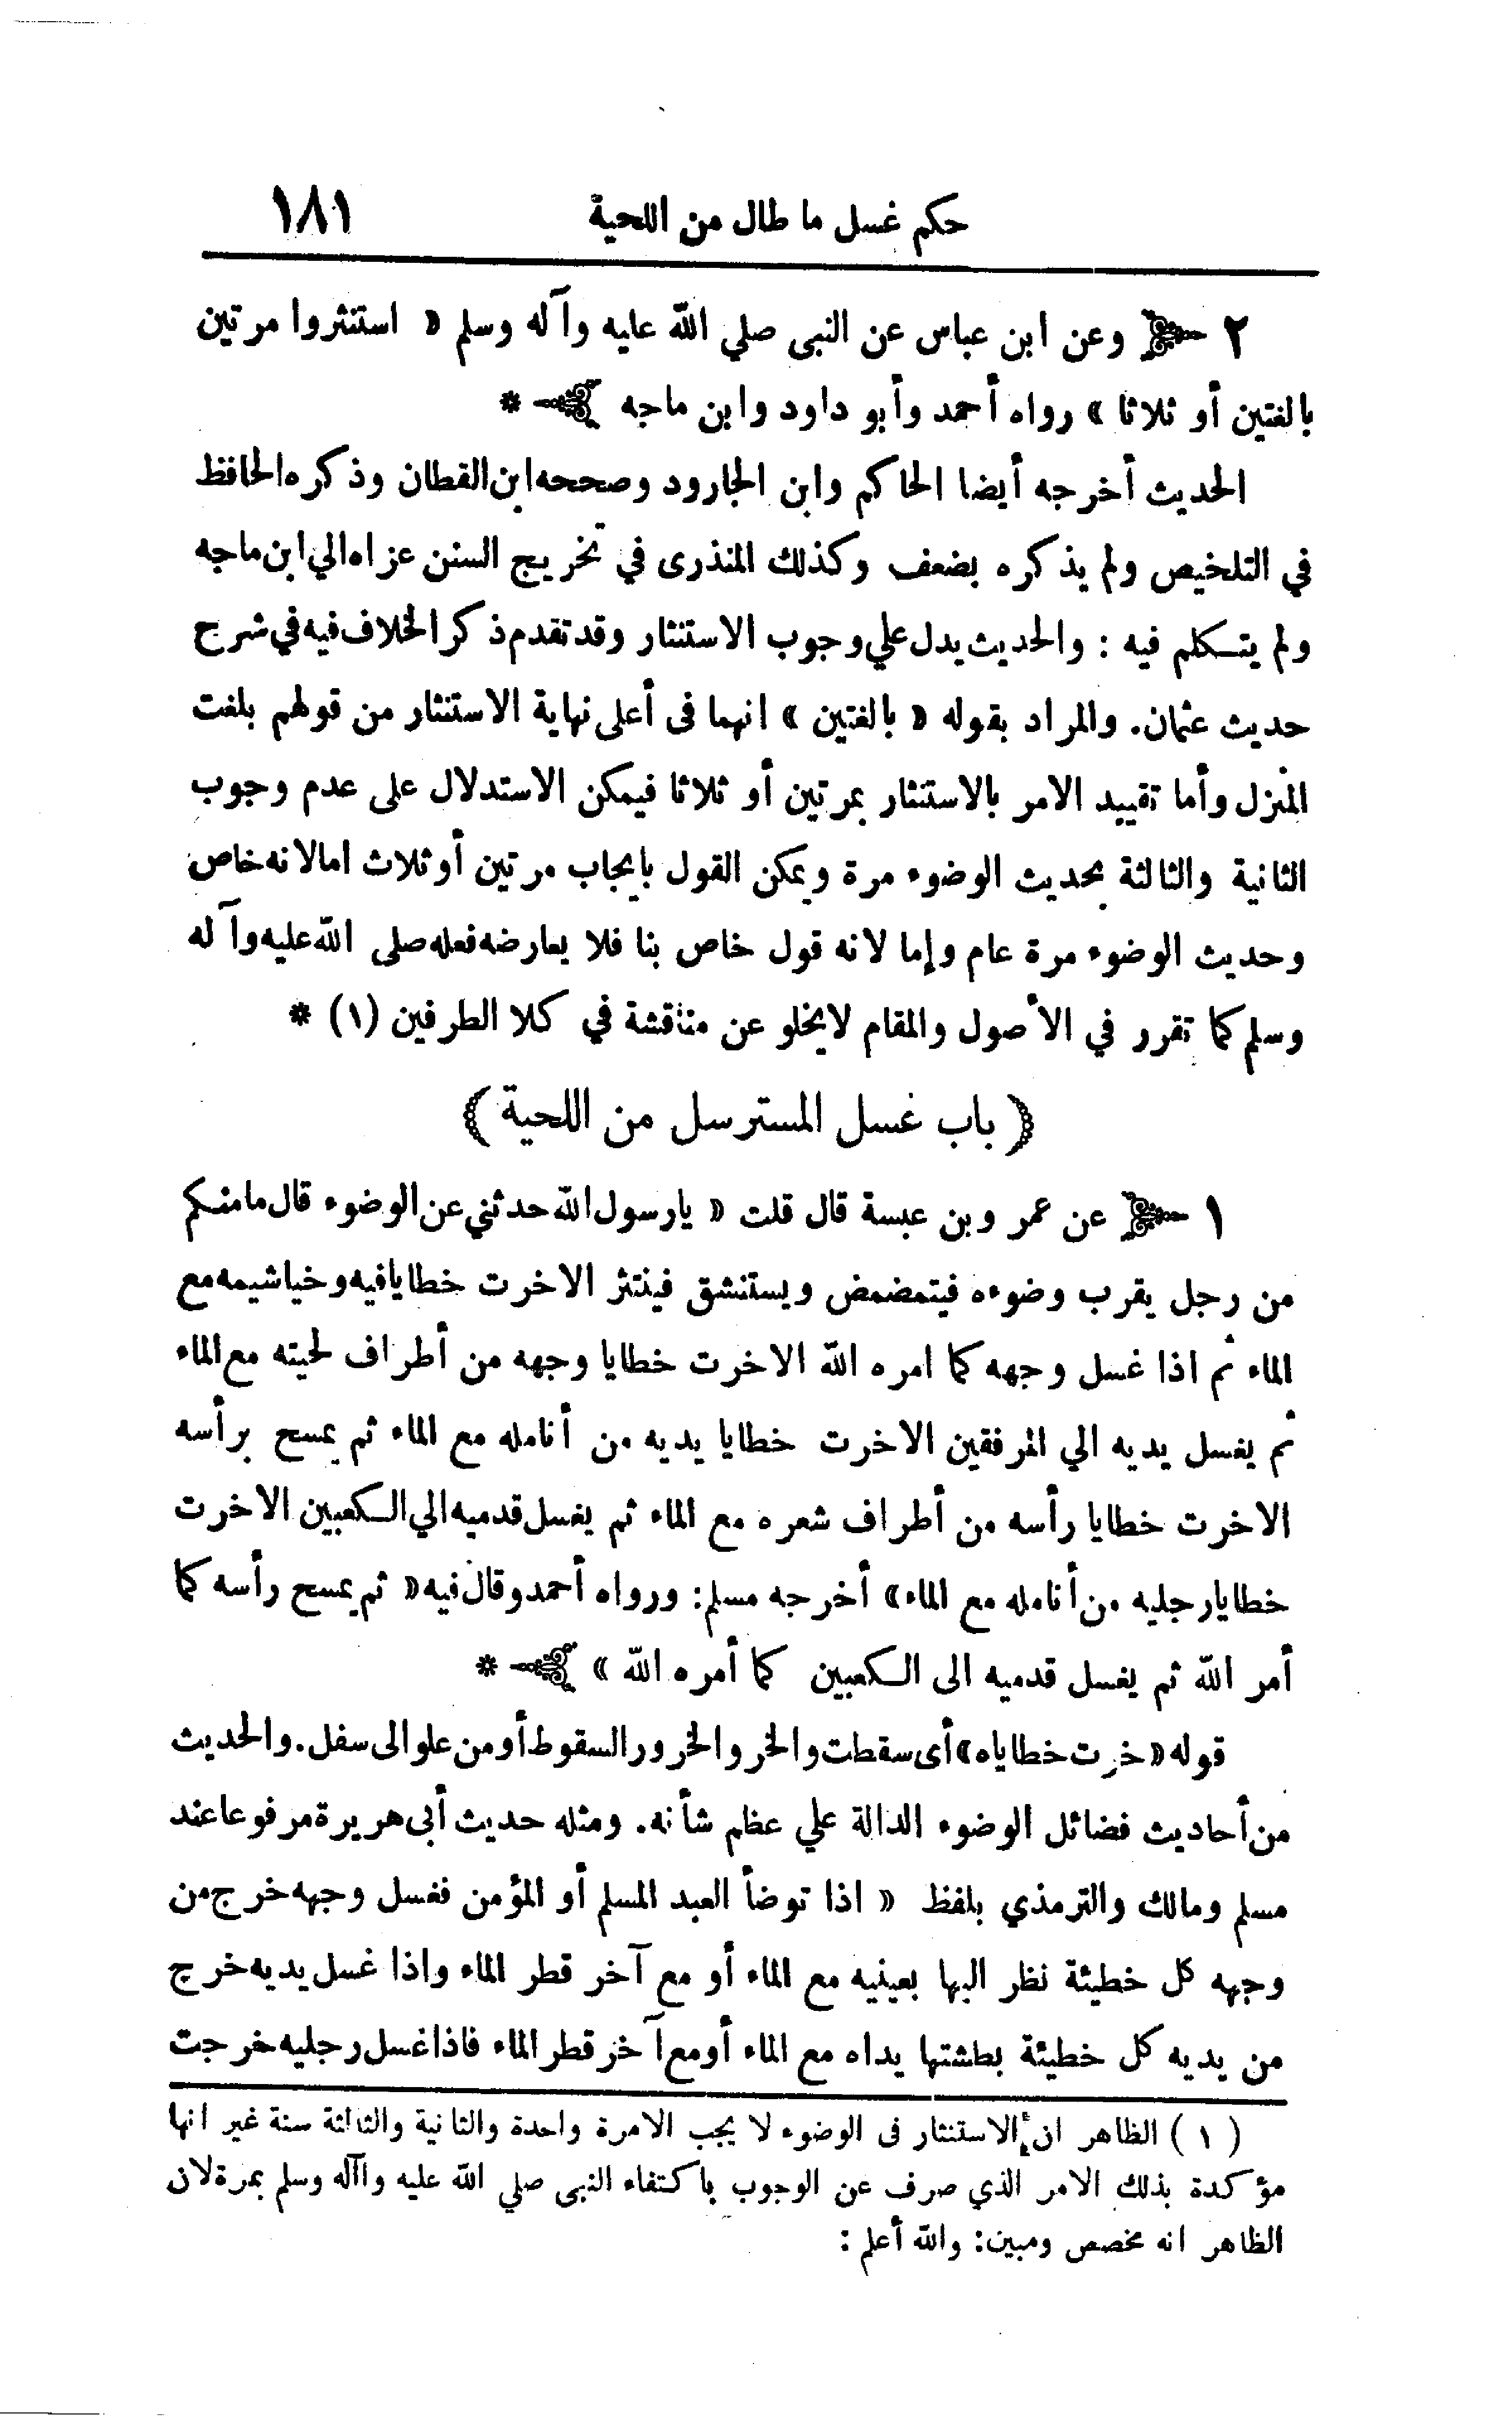 حكم غسل ما طال من اللحية ١٨١
٢ وعن ابن عباس عن النبى صلي الله عليه وآله وسلم « استنثروا مرتين
بالغتين أو ثلاثا » رواه أحمد وأبو داود وابن ماجه *
الحديث أخرجه أيضا الحاكم وابن الجارود وصححه ابن القطان وذكره الحافظ
في التلخيص ولم يذكره بضعف وكذلك المنذرى في تخريج السنن عزاه الي ابن ماجه
ولم يتكلم فيه : والحديث يدل علي وجوب الاستنثار وقد تقدم ذكر الخلاف فيه في شرح
حديث عثمان. والمراد بقوله « بالغتين » انهما فى أعلى نهاية الاستنثار من قولهم بلغت
المنزل وأما تقييد الامر بالاستنثار بمرتين أو ثلاثا فيمكن الاستدلال على عدم وجوب
الثانية والثالثة بحديث الوضوء مرة ويمكن القول بايجاب مرتين أو ثلاث اما لانه خاص
وحديث الوضوء مرة عام وإما لانه قول خاص بنا فلا يعارضه فعله صلى الله عليه وآله
وسلم كما تقرر في الأصول والمقام لا يخلو عن مناقشة في كلا الطرفين (١) *
( باب غسل المسترسل من اللحية )
١ عن عمرو بن عبسة قال قلت « يارسول الله حدثني عن الوضوء قال ما منكم
من رجل يقرب وضوءه فيتمضمض ويستنشق فينتثر الا خرت خطايا فيه وخياشيمه مع
الماء ثم اذا غسل وجهه كما امره الله الا خرت خطايا وجهه من أطراف لحيته مع الماء
ثم يغسل يديه الي المرفقين الا خرت خطايا يديه من أنامله مع الماء ثم يمسح برأسه
الا خرت خطايا رأسه من أطراف شعره مع الماء ثم يغسل قدميه الي الكعبين الا خرت
خطايا رجليه من أنامله مع الماء» أخرجه مسلم: ورواه أحمد وقال فيه « ثم يمسح رأسه كما
أمر الله ثم يغسل قدميه الى الكعبين كما أمره الله » *
قوله « خرت خطاياه » أى سقطت والخر والخرور السقوط أو من علو الى سفل. والحديث
من أحاديث فضائل الوضوء الدالة علي عظم شأنه. ومثله حديث أبى هريرة مرفوعا عند
مسلم ومالك والترمذي بلفظ « اذا توضأ العبد المسلم أو المؤمن فغسل وجهه خرج من
وجهه كل خطيئة نظر اليها بعينيه مع الماء أو مع آخر قطر الماء واذا غسل يديه خرج
من يديه كل خطيئة بطشتها يداه مع الماء أو مع آخر قطر الماء فاذا غسل رجليه خرجت
( ١ ) الظاهر ان الاستنثار فى الوضوء لا يجب الا مرة واحدة والثانية والثالثة سنة غير انها
مؤكدة بذلك الامر الذي صرف عن الوجوب باكتفاء النبى صلي الله عليه وآله وسلم بمرة لان
الظاهر انه مخصص ومبين: والله أعلم :